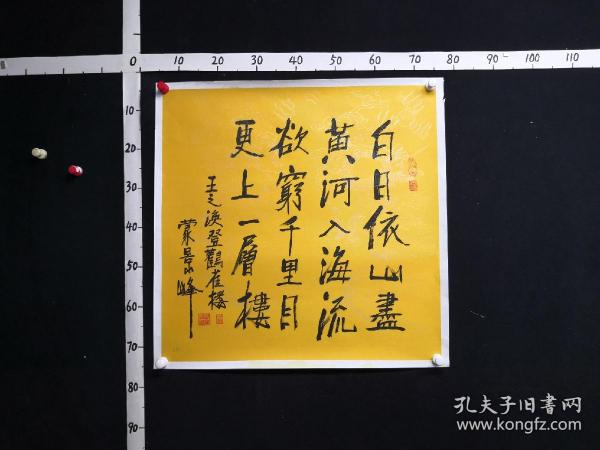 白日依山盡
黄河入海流
欲窮千里目
更上一層樓
王之渙登鸛雀樓
蒙景峰
0 10 20 30 40 50 60 70 80 90 100 110
10
20
30
40
50
60
70
80
90
孔夫子旧書网
www.kongfz.com